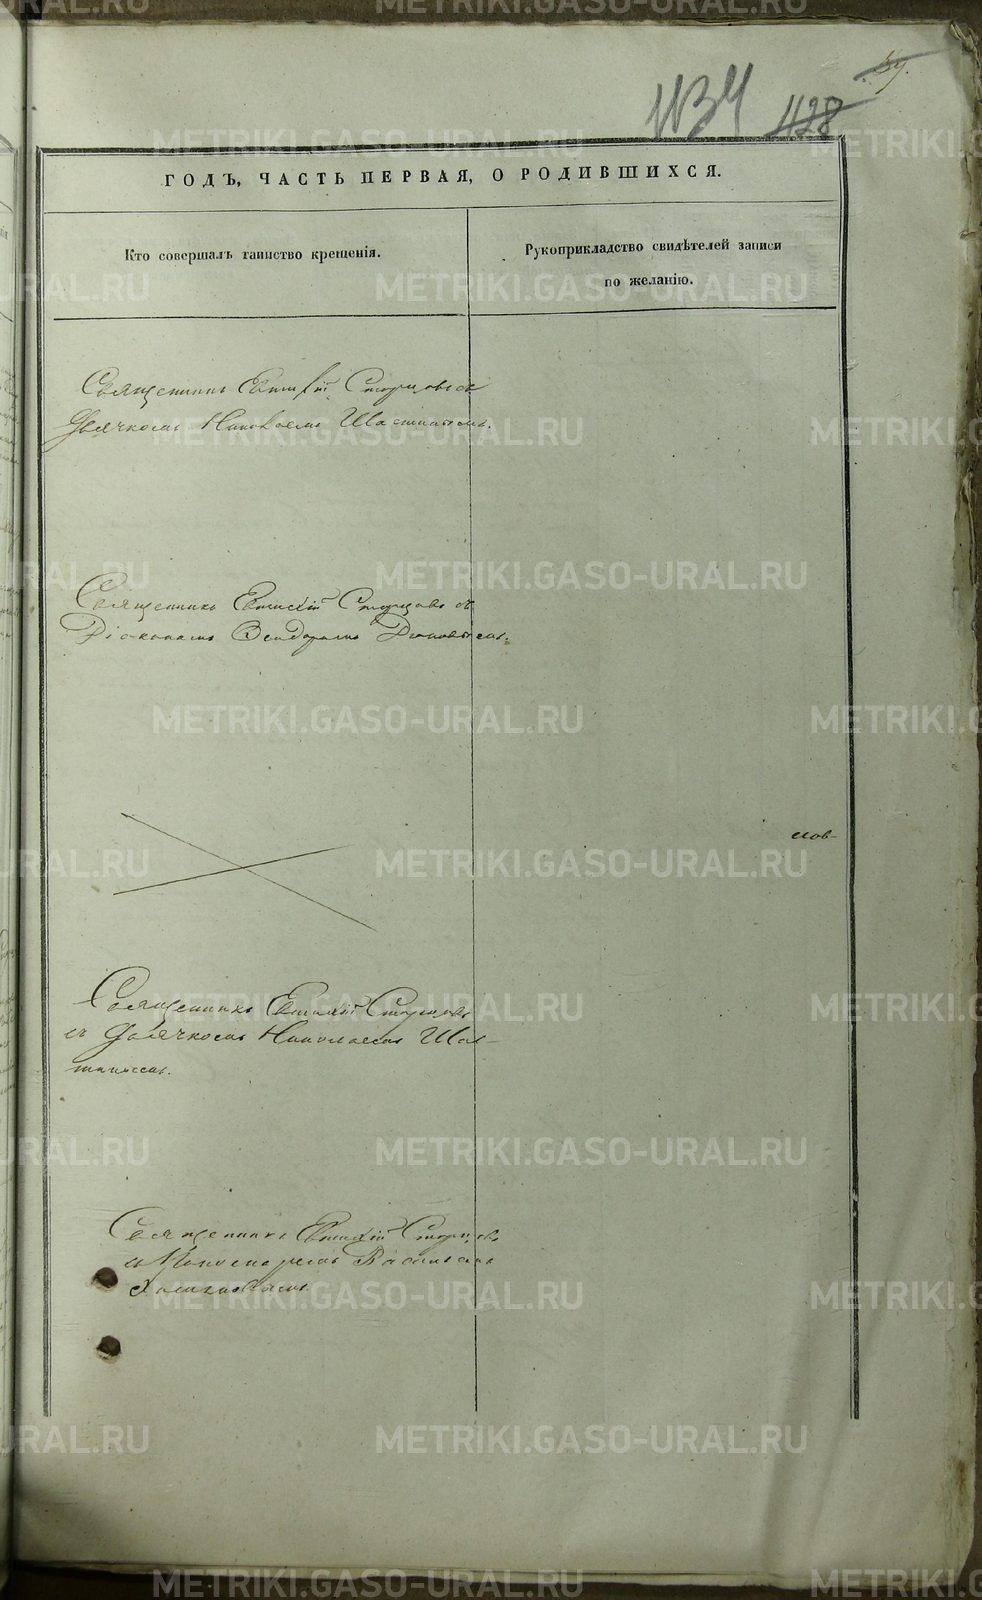 1134 1128 59.
ГОДЪ, ЧАСТЬ ПЕРВАЯ, О РОДИВШИХСЯ.
Кто совершалъ таинство крещенія.
Рукоприкладство свидѣтелей записи
по желанію.
Священникъ Евтихій Старцовъ съ
Дьячкомъ Николаемъ
Священникъ Евтихій Старцовъ съ
Діакономъ Ѳеодоромъ
Священникъ Евтихій Старцовъ
съ Дьячкомъ Николаемъ
Священникъ Евтихій Старцовъ
съ Пономаремъ
METRIKI.GASO-URAL.RU